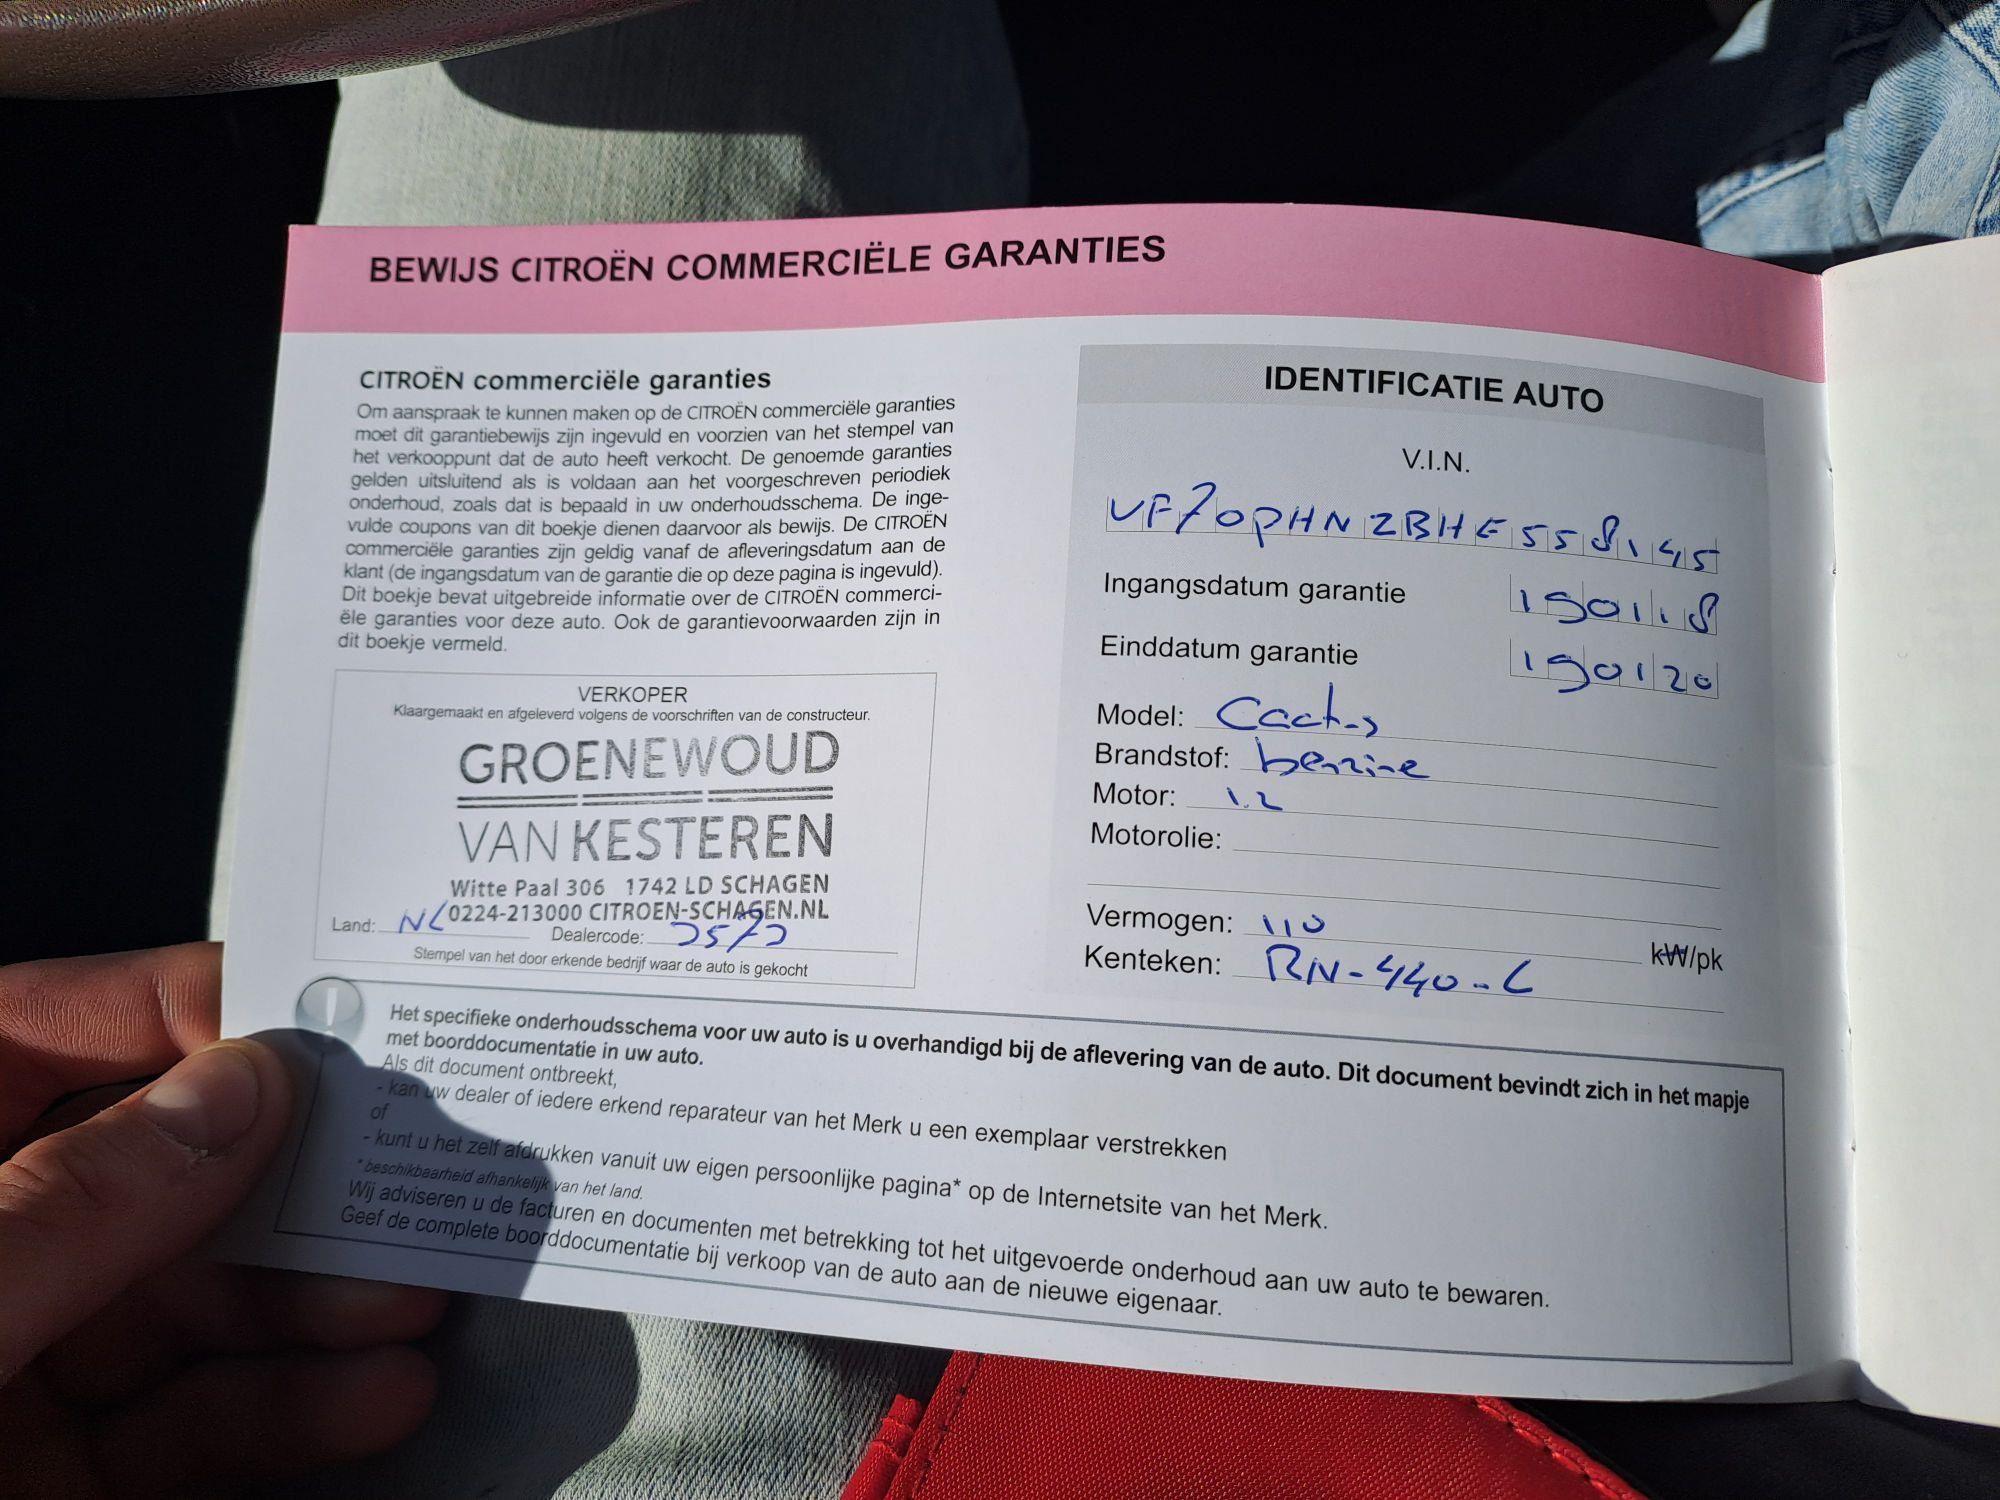 BEWIJS CITROËN COMMERCIËLE GARANTIES
CITROËN commerciële garanties
Om aanspraak te kunnen maken op de CITROËN commerciële garanties
moet dit garantiebewijs zijn ingevuld en voorzien van het stempel van
het verkooppunt dat de auto heeft verkocht. De genoemde garanties
gelden uitsluitend als is voldaan aan het voorgeschreven periodiek
onderhoud, zoals dat is bepaald in uw onderhoudsschema. De inge-
vulde coupons van dit boekje dienen daarvoor als bewijs. De CITROËN
commerciële garanties zijn geldig vanaf de afleveringsdatum aan de
klant (de ingangsdatum van de garantie die op deze pagina is ingevuld).
Dit boekje bevat uitgebreide informatie over de CITROËN commerci-
ële garanties voor deze auto. Ook de garantievoorwaarden zijn in
dit boekje vermeld.
VERKOPER
Klaargemaakt en afgeleverd volgens de voorschriften van de constructeur.
GROENEWOUD
VAN KESTEREN
Witte Paal 306 1742 LD SCHAGEN
0224-213000 CITROEN-SCHAGEN.NL
Land: NL Dealercode:
Stempel van het door erkende bedrijf waar de auto is gekocht
IDENTIFICATIE AUTO
V.I.N.
VF70PHNZBHE558145
Ingangsdatum garantie 190118
Einddatum garantie 190120
Model: Cactus
Brandstof: benzine
Motor: 1.2
Motorolie:
Vermogen: 110 kW/pk
Kenteken: RN-440-L
Het specifieke onderhoudsschema voor uw auto is u overhandigd bij de aflevering van de auto. Dit document bevindt zich in het mapje
met boorddocumentatie in uw auto.
Als dit document ontbreekt,
- kan uw dealer of iedere erkend reparateur van het Merk u een exemplaar verstrekken
of
- kunt u het zelf afdrukken vanuit uw eigen persoonlijke pagina* op de Internetsite van het Merk.
* beschikbaarheid afhankelijk van het land.
Wij adviseren u de facturen en documenten met betrekking tot het uitgevoerde onderhoud aan uw auto te bewaren.
Geef de complete boorddocumentatie bij verkoop van de auto aan de nieuwe eigenaar.